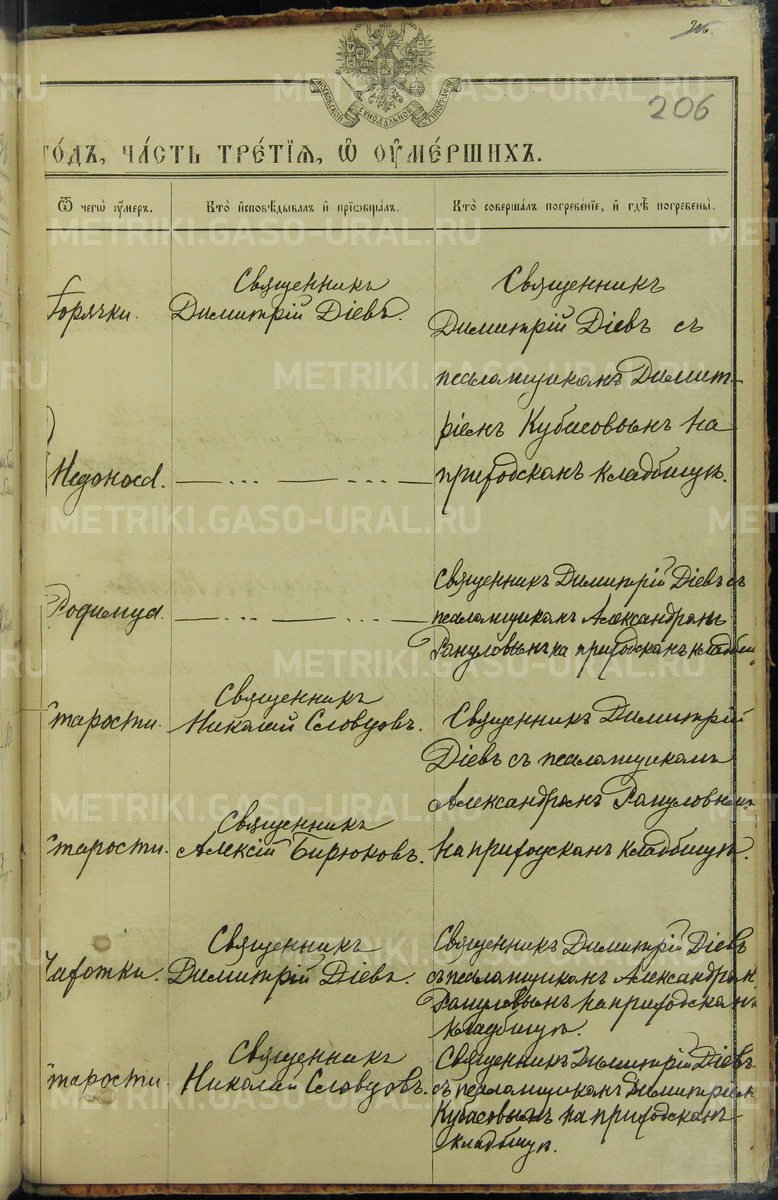 206.
206
МОСКОВСКОЙ СѴНОДАЛЬНОЙ ТИПОГРАФІИ
METRIKI.GASO-URAL.RU
го́дъ, ча́сть тре́тїѧ, ѡ҆ ᲂу҆ме́ршихъ.
Ѿ чегѡ̀ ᲂу҆́меръ.
Кто̀ и҆сповѣ́дывалъ и҆ прїѡбща́лъ.
Кто̀ соверша́лъ погребе́нїе, и҆ гдѣ̀ погребены̀.
Горячки.
Священникъ
Димитрій Діевъ.
Священникъ
Димитрій Діевъ съ
псаломщикомъ Димит-
ріемъ Кубасовымъ на
приходскомъ кладбищѣ.
Недоноса.
Родимца.
Священникъ Димитрій Діевъ съ
псаломщикомъ Александромъ
Рапуловымъ на приходскомъ кладбищ
Старости.
Священникъ
Николай Словцовъ.
Священникъ Димитрій
Діевъ съ псаломщикомъ
Александромъ Рапуловымъ
на приходскомъ кладбищѣ.
Старости.
Священникъ
Алексій Бирюковъ.
Чахотки.
Священникъ
Димитрій Діевъ.
Священникъ Димитрій Діевъ
съ псаломщикомъ Александромъ
Рапуловымъ на приходскомъ
кладбищѣ.
Старости.
Священникъ
Николай Словцовъ.
Священникъ Димитрій Діевъ
съ псаломщикомъ Димитріем
Кубасовымъ на приходскомъ
кладбищѣ.